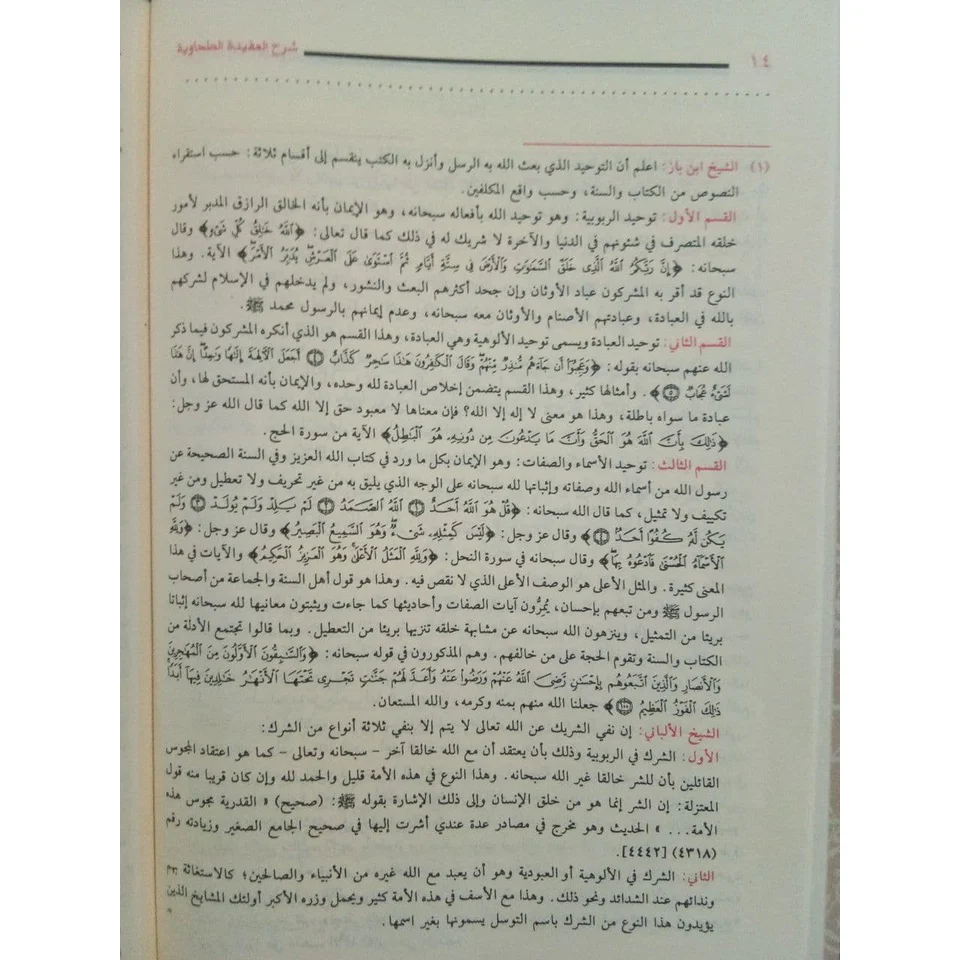 ١٤ شرح العقيدة الطحاوية
(١) الشيخ ابن باز: اعلم أن التوحيد الذي بعث الله به الرسل وأنزل به الكتب ينقسم إلى أقسام ثلاثة: حسب استقراء
النصوص من الكتاب والسنة، وحسب واقع المكلفين.
القسم الأول: توحيد الربوبية: وهو توحيد الله بأفعاله سبحانه، وهو الإيمان بأنه الخالق الرازق المدبر لأمور
خلقه المتصرف في شئونهم في الدنيا والآخرة لا شريك له في ذلك كما قال تعالى: ﴿اللَّهُ خَالِقُ كُلِّ شَيْءٍ﴾ وقال
سبحانه: ﴿إِنَّ رَبَّكُمُ اللَّهُ الَّذِي خَلَقَ السَّمَاوَاتِ وَالْأَرْضَ فِي سِتَّةِ أَيَّامٍ ثُمَّ اسْتَوَىٰ عَلَى الْعَرْشِ يُدَبِّرُ الْأَمْرَ﴾ الآية. وهذا
النوع قد أقر به المشركون عباد الأوثان وإن جحد أكثرهم البعث والنشور، ولم يدخلهم في الإسلام لشركهم
بالله في العبادة، وعبادتهم الأصنام والأوثان معه سبحانه، وعدم إيمانهم بالرسول محمد ﷺ.
القسم الثاني: توحيد العبادة ويسمى توحيد الألوهية وهي العبادة، وهذا القسم هو الذي أنكره المشركون فيما ذكر
الله عنهم سبحانه بقوله: ﴿وَعَجِبُوا أَن جَاءَهُم مُّنذِرٌ مِّنْهُمْ وَقَالَ الْكَافِرُونَ هَٰذَا سَاحِرٌ كَذَّابٌ ۝٤ أَجَعَلَ الْآلِهَةَ إِلَٰهًا وَاحِدًا إِنَّ هَٰذَا
لَشَيْءٌ عُجَابٌ ۝٥﴾. وأمثالها كثير، وهذا القسم يتضمن إخلاص العبادة لله وحده، والإيمان بأنه المستحق لها، وأن
عبادة ما سواه باطلة، وهذا هو معنى لا إله إلا الله؟ فإن معناها لا معبود حق إلا الله كما قال الله عز وجل:
﴿ذَٰلِكَ بِأَنَّ اللَّهَ هُوَ الْحَقُّ وَأَنَّ مَا يَدْعُونَ مِن دُونِهِ هُوَ الْبَاطِلُ﴾ الآية من سورة الحج.
القسم الثالث: توحيد الأسماء والصفات: وهو الإيمان بكل ما ورد في كتاب الله العزيز وفي السنة الصحيحة عن
رسول الله من أسماء الله وصفاته وإثباتها لله سبحانه على الوجه الذي يليق به من غير تحريف ولا تعطيل ومن غير
تكييف ولا تمثيل، كما قال الله سبحانه: ﴿قُلْ هُوَ اللَّهُ أَحَدٌ ۝١ اللَّهُ الصَّمَدُ ۝٢ لَمْ يَلِدْ وَلَمْ يُولَدْ ۝٣ وَلَمْ
يَكُن لَّهُ كُفُوًا أَحَدٌ ۝٤﴾ وقال عز وجل: ﴿لَيْسَ كَمِثْلِهِ شَيْءٌ وَهُوَ السَّمِيعُ الْبَصِيرُ﴾ وقال عز وجل: ﴿وَلِلَّهِ
الْأَسْمَاءُ الْحُسْنَىٰ فَادْعُوهُ بِهَا﴾ وقال سبحانه في سورة النحل: ﴿وَلِلَّهِ الْمَثَلُ الْأَعْلَىٰ وَهُوَ الْعَزِيزُ الْحَكِيمُ﴾ والآيات في هذا
المعنى كثيرة. والمثل الأعلى هو الوصف الأعلى الذي لا نقص فيه. وهذا هو قول أهل السنة والجماعة من أصحاب
الرسول ﷺ ومن تبعهم بإحسان، يُمِرُّون آيات الصفات وأحاديثها كما جاءت ويثبتون معانيها لله سبحانه إثباتا
بريئا من التمثيل، وينزهون الله سبحانه عن مشابهة خلقه تنزيها بريئا من التعطيل. وبما قالوا تجتمع الأدلة من
الكتاب والسنة وتقوم الحجة على من خالفهم. وهم المذكورون في قوله سبحانه: ﴿وَالسَّابِقُونَ الْأَوَّلُونَ مِنَ الْمُهَاجِرِينَ
وَالْأَنصَارِ وَالَّذِينَ اتَّبَعُوهُم بِإِحْسَانٍ رَّضِيَ اللَّهُ عَنْهُمْ وَرَضُوا عَنْهُ وَأَعَدَّ لَهُمْ جَنَّاتٍ تَجْرِي تَحْتَهَا الْأَنْهَارُ خَالِدِينَ فِيهَا أَبَدًا
ذَٰلِكَ الْفَوْزُ الْعَظِيمُ ۝١٠٠﴾ جعلنا الله منهم بمنه وكرمه، والله المستعان.
الشيخ الألباني: إن نفي الشريك عن الله تعالى لا يتم إلا بنفي ثلاثة أنواع من الشرك:
الأول: الشرك في الربوبية وذلك بأن يعتقد أن مع الله خالقا آخر - سبحانه وتعالى - كما هو اعتقاد المجوس
القائلين بأن للشر خالقا غير الله سبحانه. وهذا النوع في هذه الأمة قليل والحمد لله وإن كان قريبا منه قول
المعتزلة: إن الشر إنما هو من خلق الإنسان وإلى ذلك الإشارة بقوله ﷺ: (صحيح) « القدرية مجوس هذه
الأمة... » الحديث وهو مخرج في مصادر عدة عندي أشرت إليها في صحيح الجامع الصغير وزيادته رقم
(٤٣١٨) [٤٤٤٢].
الثاني: الشرك في الألوهية أو العبودية وهو أن يعبد مع الله غيره من الأنبياء والصالحين؛ كالاستغاثة بهم
وندائهم عند الشدائد ونحو ذلك. وهذا مع الأسف في هذه الأمة كثير ويحمل وزره الأكبر أولئك المشايخ الذين
يؤيدون هذا النوع من الشرك باسم التوسل يسمونها بغير اسمها.